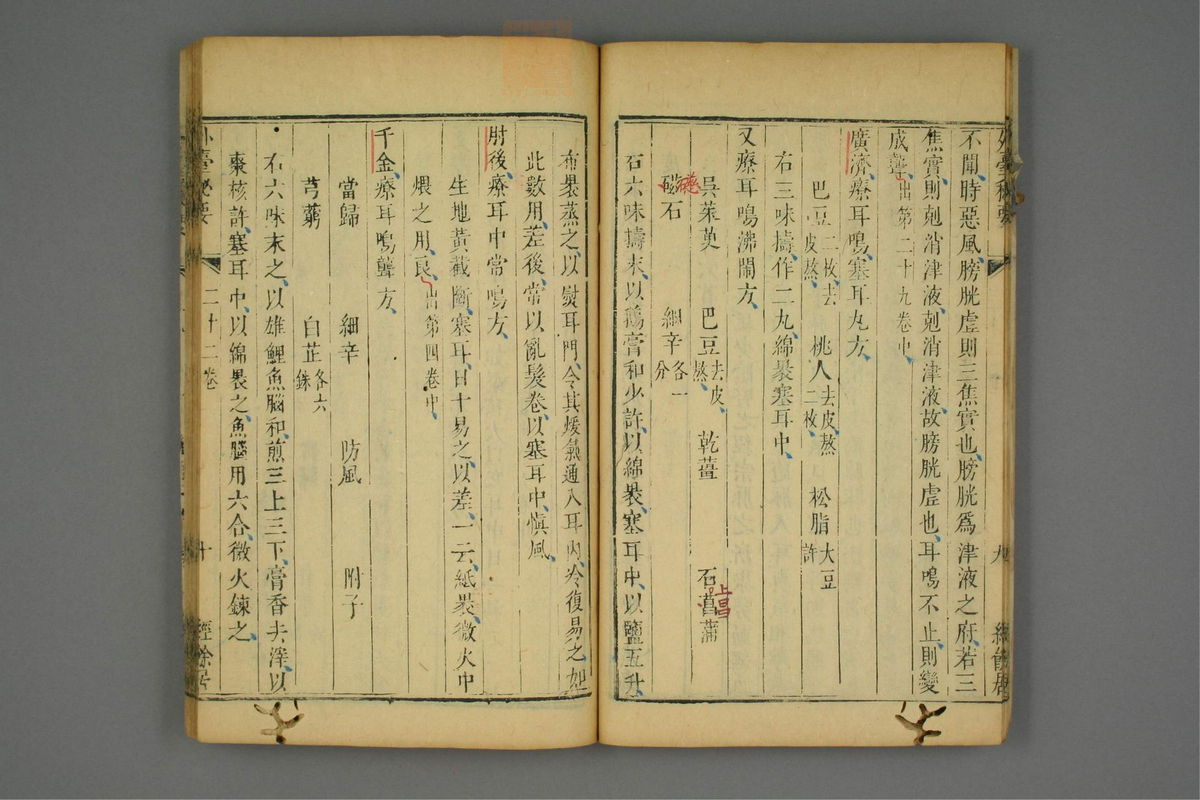 不聞時惡風膀胱虛則三焦實也膀胱為津液之府若三
焦實則剋消津液剋消津液故膀胱虛也耳鳴不止則變
成聾出第二十九卷中
廣濟療耳鳴塞耳丸方
巴豆二枚去皮熬 桃人去皮熬二枚 松脂大豆許
右三味擣作二丸綿裹塞耳中
又療耳鳴沸鬧方
吳茱萸 巴豆去皮熬 乾薑 石菖蒲
磁石 細辛各一分
右六味擣末以鵝膏和少許以綿裹塞耳中以鹽五升
布裹蒸之以熨耳門令其煖氣通入耳內冷復易之如
此數用差後常以亂髮卷以塞耳中慎風
肘後療耳中常鳴方
生地黃截斷塞耳日十易之以差一云紙裹微火中
煨之用良出第四卷中
千金療耳鳴聾方
當歸 細辛 防風 附子
芎藭 白芷各六銖
右六味末之以雄鯉魚腦和煎三上三下膏香去滓以
棗核許塞耳中以綿裹之魚腦用六合微火鍊之
外臺秘要 二十二卷 十 經餘居